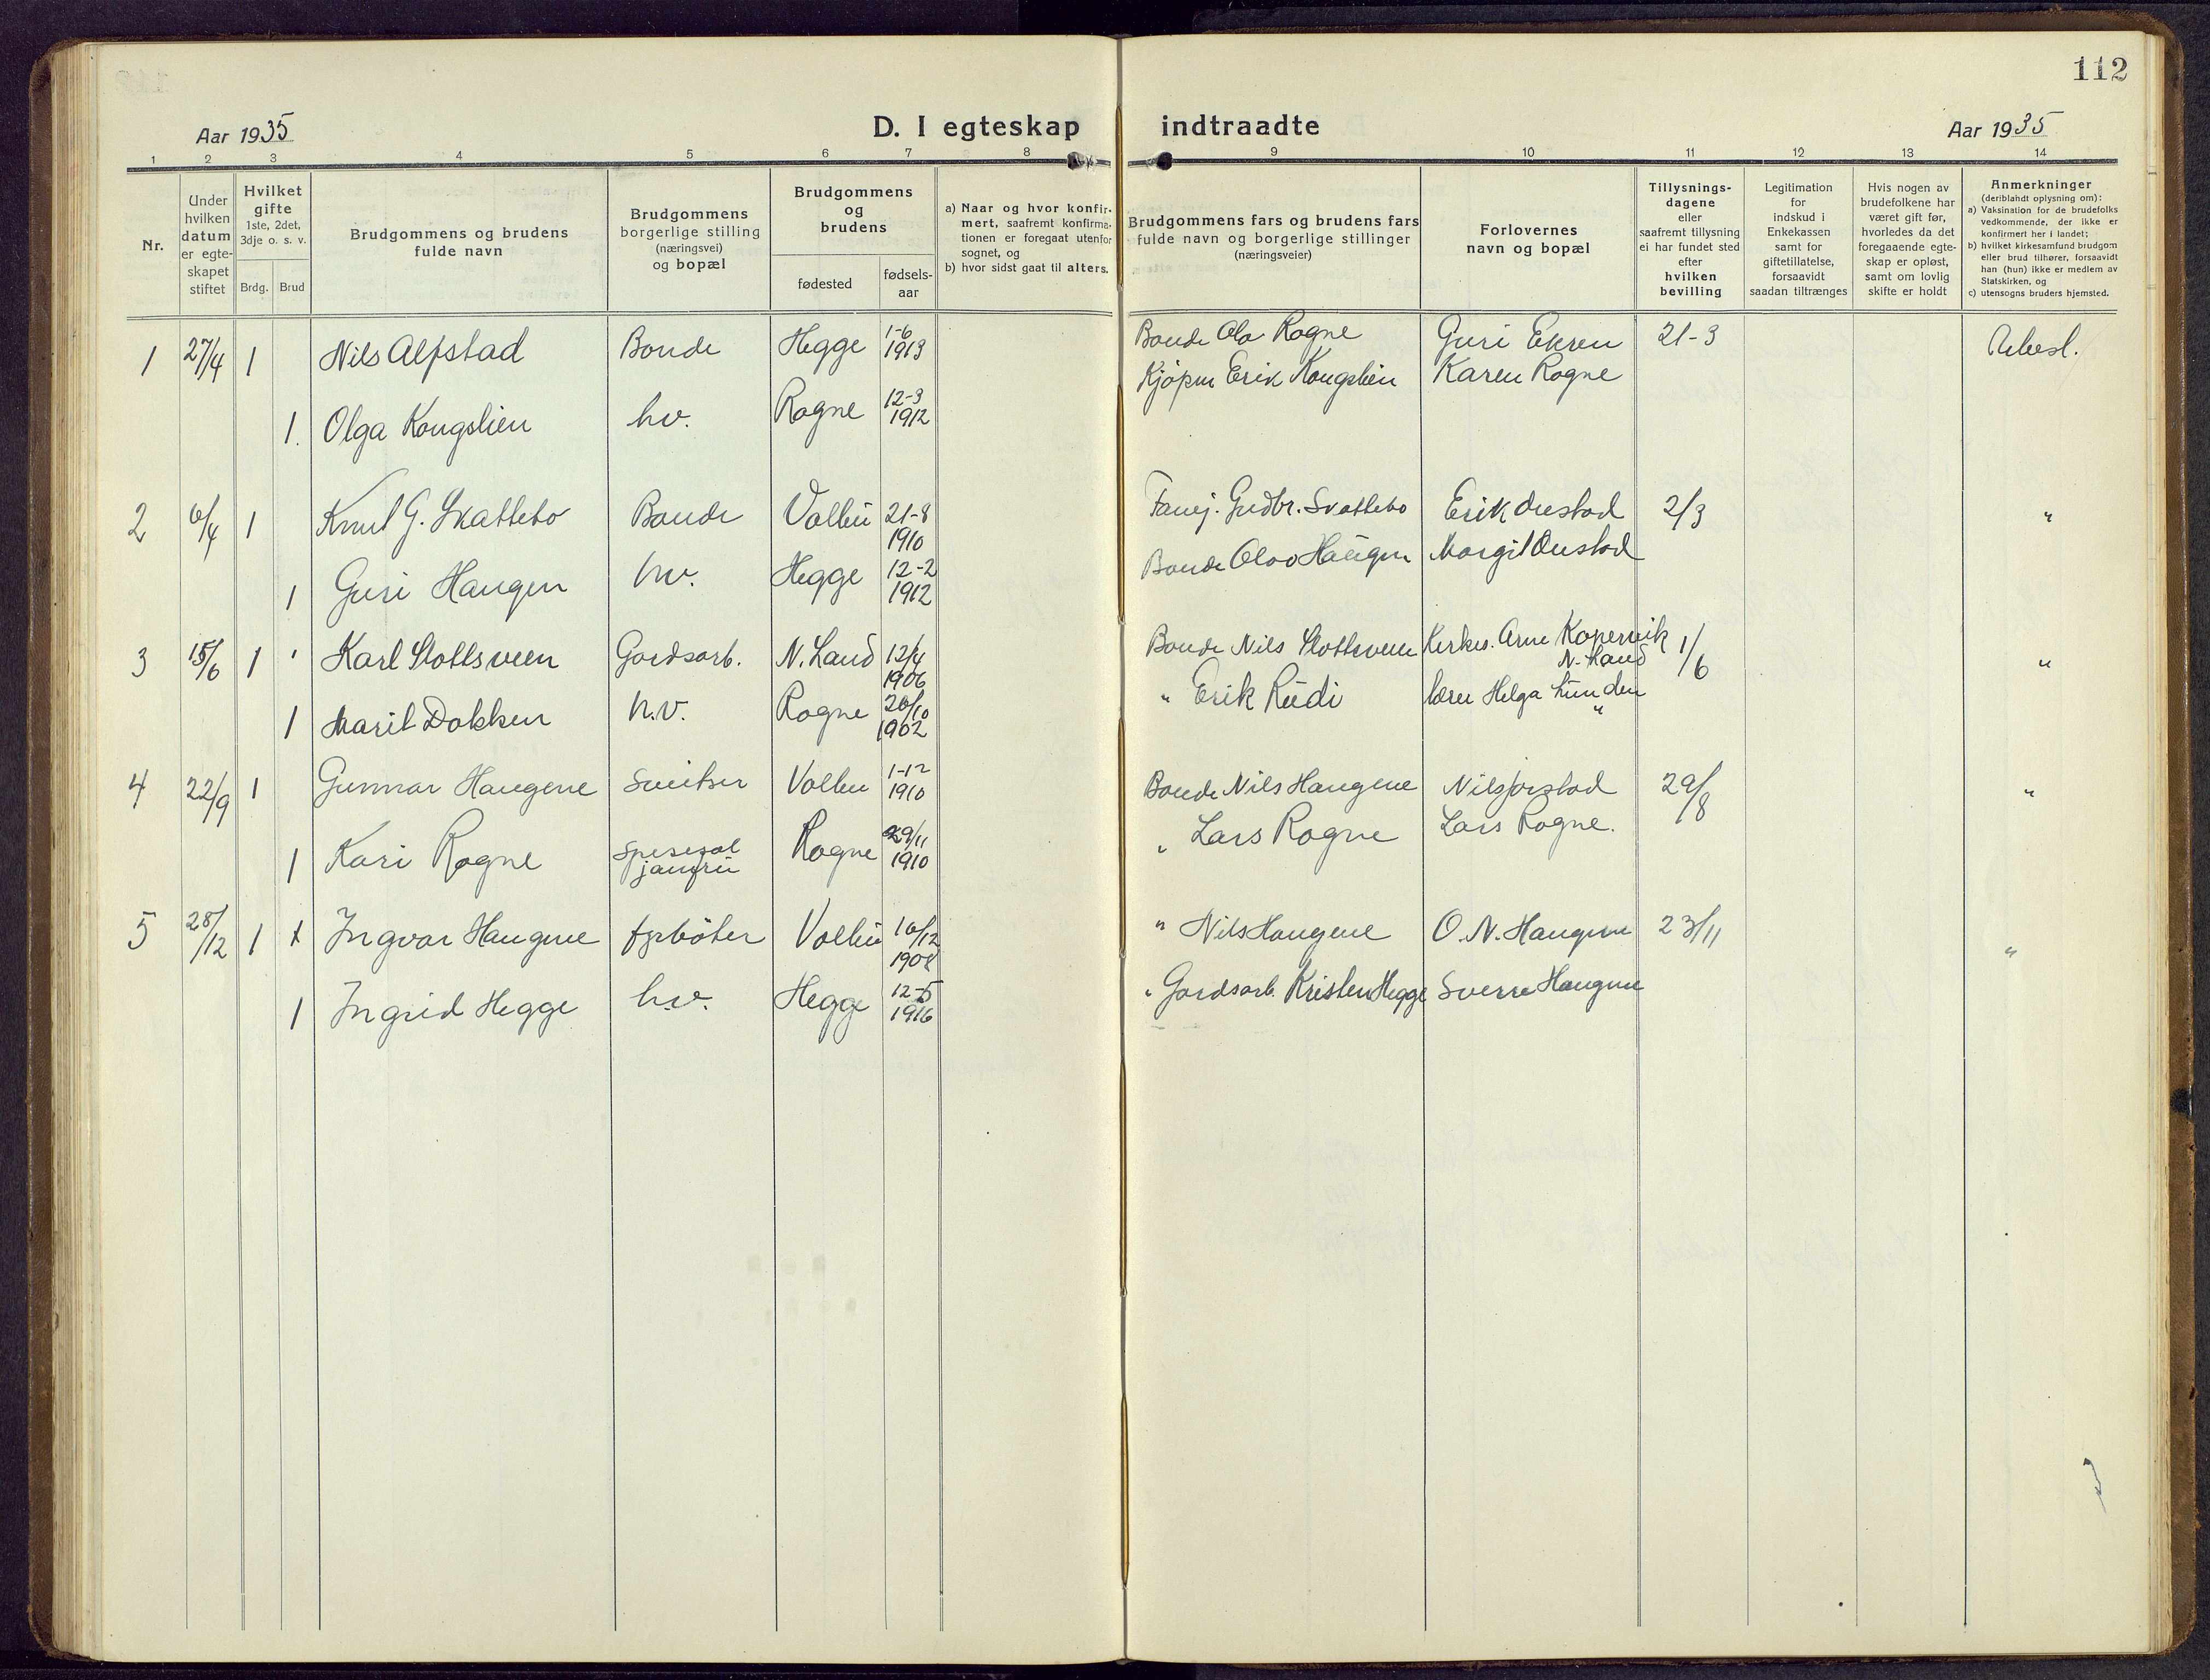 112
D. I egteskap indtraadte
Aar 1935
Aar 1935
1 2 3 4 5 6 7 8 9 10 11 12 13 14
Nr.
Under hvilken datum er egte-skapet stiftet
Hvilket gifte
1ste, 2det, 3dje o. s. v.
Brdg. Brud
Brudgommens og brudens fulde navn
Brudgommens borgerlige stilling (næringsvei) og bopæl
Brudgommens og brudens
fødested
fødsels-aar
a) Naar og hvor konfir-mert, saafremt konfirma-tionen er foregaat utenfor sognet, og
b) hvor sidst gaat til alters.
Brudgommens fars og brudens fars fulde navn og borgerlige stillinger (næringsveier)
Forlovernes navn og bopæl
Tillysnings-dagene eller saafremt tillysning ei har fundet sted efter hvilken bevilling
Legitimation for indskud i Enkekassen samt for giftetillatelse, forsaavidt saadan tiltrænges
Hvis nogen av brudefolkene har været gift før, hvorledes da det foregaaende egte-skap er opløst, samt om lovlig skifte er holdt
Anmerkninger (deriblandt oplysning om):
a) Vaksination for de brudefolks vedkommende, der ikke er konfirmert her i landet;
b) hvilket kirkesamfund brudgom eller brud tilhører, forsaavidt han (hun) ikke er medlem av Statskirken, og
c) utensogns bruders hjemsted.
1 27/4 1 Nils Alfstad Bonde Hegge 1-6 1913 Bonde Ola Rogne Guri Ekren 21-3
1. Olga Kongslien hv. Rogne 12-3 1912 Kjøpm Erik Kongslien Karen Rogne
2 6/4 1 Knut G. Skattebo Bonde Volbu 21-8 1910 Gudbr. Skattebo Erik 2/3 "
1 Guri Haugen hv. Hegge 12-2 1912 Bonde Olav Haugen Margit
3 15/6 1 Karl Slottsveen Gardsarb. N. Land 12/4 1906 Bonde Nils Slottsveen Kirkes. Arne Kopervik N. Land 1/6 "
1 Marit Dokken h.v. Rogne 26/10 1902 " Erik Rudi Helga Lunden "
4 22/9 1 Gunnar Haugene Sveitser Volbu 1-12 1910 Bonde Nils Haugene Nils Jorstad 29/8 "
1 Kari Rogne Rogne 29/11 1910 " Lars Rogne Lars Rogne.
5 28/12 1 Ingvar Haugene fyrbøter Volbu 16/12 1908 " Nils Haugene O. N. Haugene 23/11 "
1 Ingrid Hegge h.v. Hegge 12-5 1916 Gardsarb. Kristen Hegge Sverre Haugene